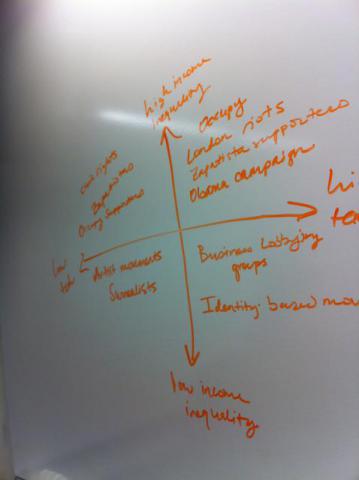 high income
inequality
Occupy
London riots
Zapatista supporters
Obama campaign
civil rights
Zapatistas
Occupy Supporters
hi
low
tech
Artist movements
Surrealists
Business Lobbying
groups
Identity-based mov
low income
inequality